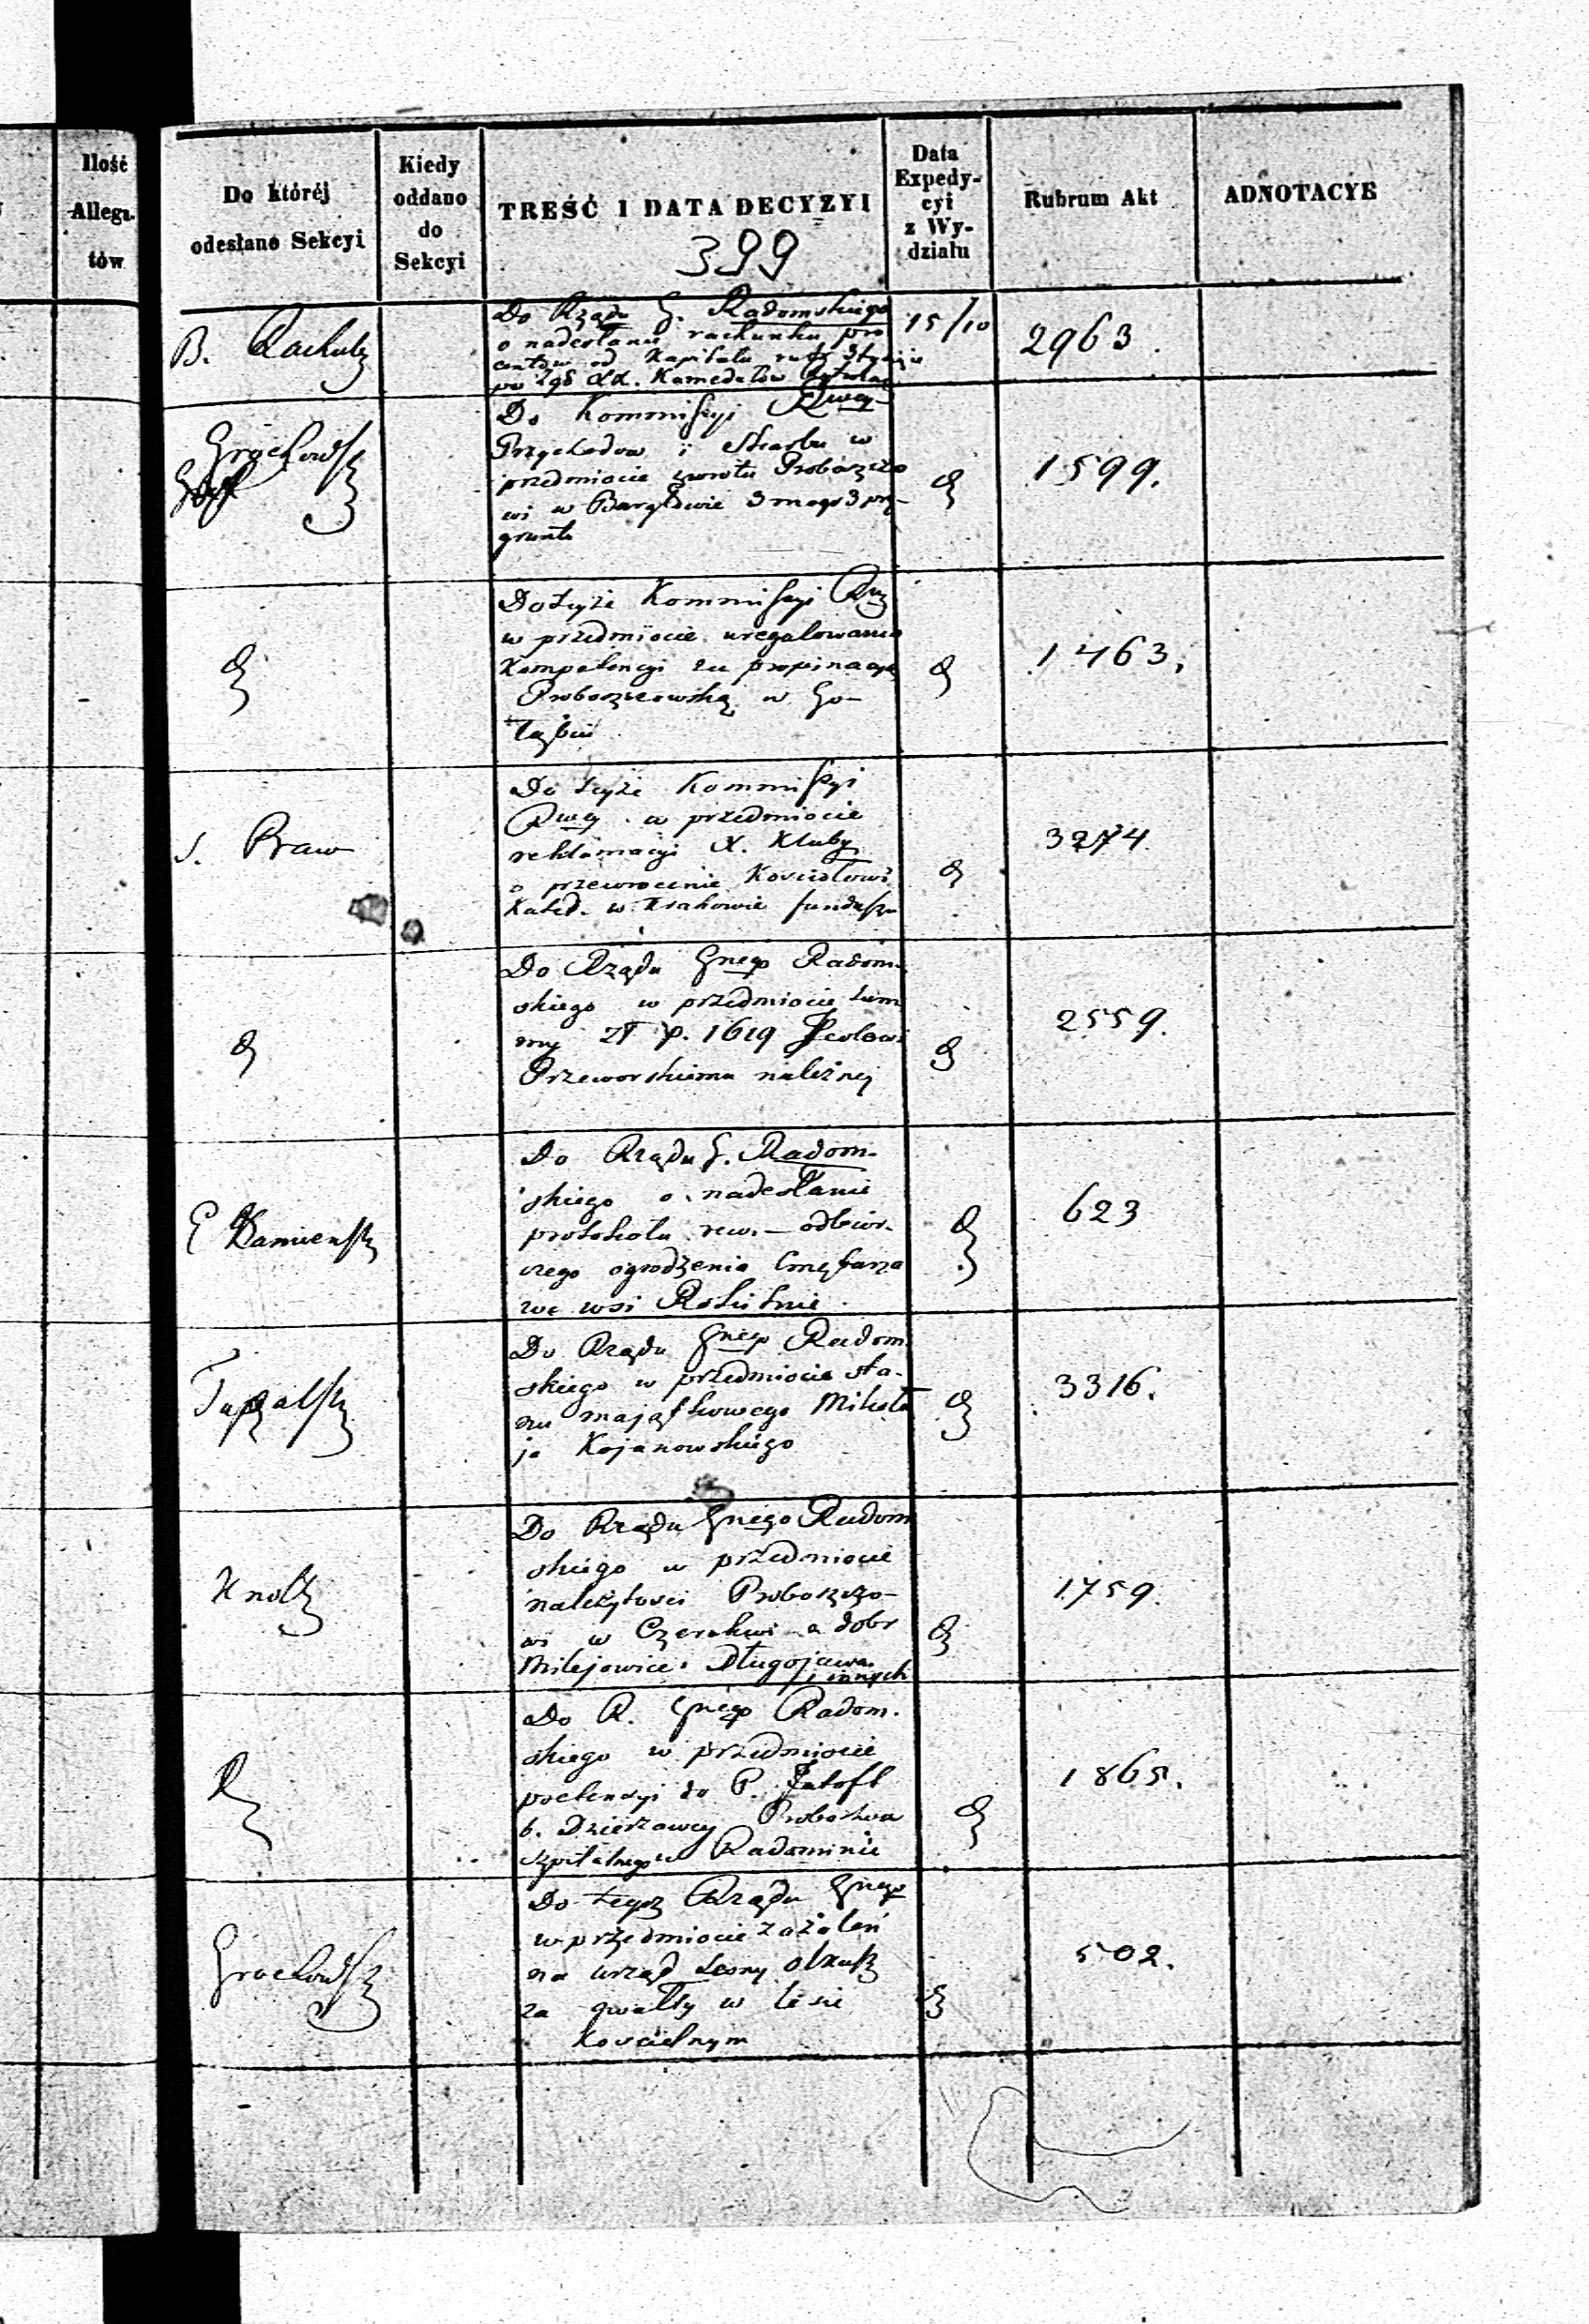 Ilość
Allega-
tów
Do któréj
odesłano Sekcyi
Kiedy
oddano
do
Sekcyi
TREŚĆ I DATA DECYZYI
399
Data
Expedy-
cyi
z Wy-
działu
Rubrum Akt
ADNOTACYE
B.
Do Rządu G. Radomskiego
o nadesłanie rachunku pro
centów od Kapitału
po 298 Kamedułów
15/10
2963.
Grochowski
Do Kommissyi Rwey
Przychodów i Skarbu w
przedmiocie zwrotu Proboszczo
wi w 3 mogr 3 prę-
gruntu
1599.
Do tejże Kommissyi Rzą
w przedmiocie uregulowania
Kompetencyi za propinacyą
Proboszczowską w Go-
łąbiu
1463.
S. Praw
Do tejże Kommissyi
Rwey w przedmiocie
reklamacyi X. Kluby
o przewrócenie Kościołowi
Kated. w Krakowie funduszu
3274
Do Rządu Gnego Radom-
skiego w przedmiocie sum
my zł p. 1619
Przeworskiemu należnej
2559.
Kamieński
Do Rządu G. Radom-
skiego o nadesłanie
protokołu rew. – odbior-
czego ogrodzenia Cmętarza
we wsi
623
Do Rządu Gnego Radom
skiego w przedmiocie sta-
nu majątkowego Mikoła
ja Kojanowskiego
3316.
Knoll
Do Rządu Gnego Radom
skiego w przedmiocie
należytości Proboszczo-
wi w Czerekwi z dobr
Milejowice, Długojowa
i innych
1759.
Do R. Gnego Radom.
skiego w przedmiocie
pretensyi do P.
b. Dzierżawcy Probostwa
szpitalnego w
1865.
Grochowski
Do tegoż Rządu Gnego
w przedmiocie zażaleń
na urząd Leśny Olkusz
za gwałty w lesie
Kościelnym
502.